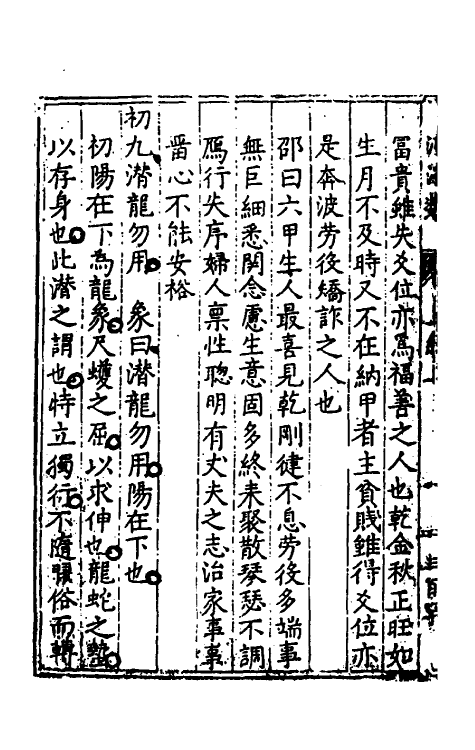 富貴雖失爻位亦爲福善之人也乾金秋正旺如
生月不及時又不在納甲者主貧賤雖得爻位亦
是奔波劳役矯詐之人也
邵曰六甲生人最喜見乾剛健不息劳役多端事
無巨細悉関念慮生意固多終未聚散琴瑟不調
鴈行失序婦人禀性聦明有丈夫之志治家事事
畱心不能安裕
初九潜龍勿用　象曰潜龍勿用陽在下也
初陽在下為龍象尺蠖之屈以求伸也龍蛇之蟄
以存身也此潜之謂也特立獨行不隨驟俗而轉